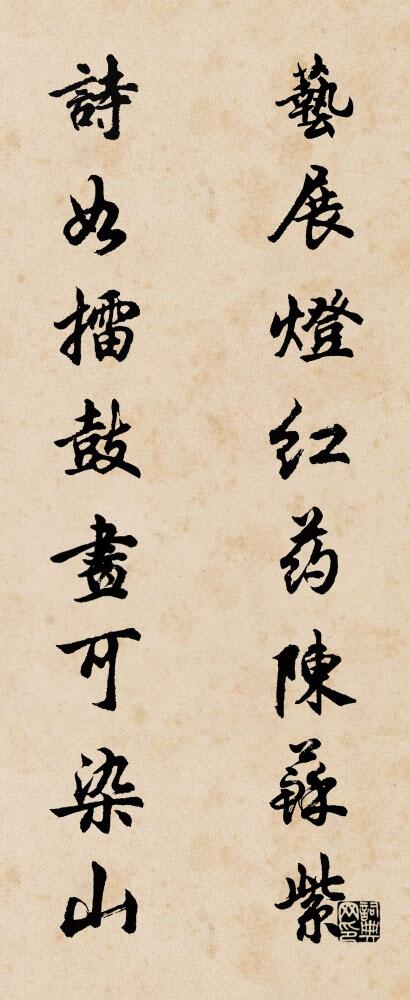 藝展燈红药陳蘇紫
詩如擂鼓畫可染山
詞典网印